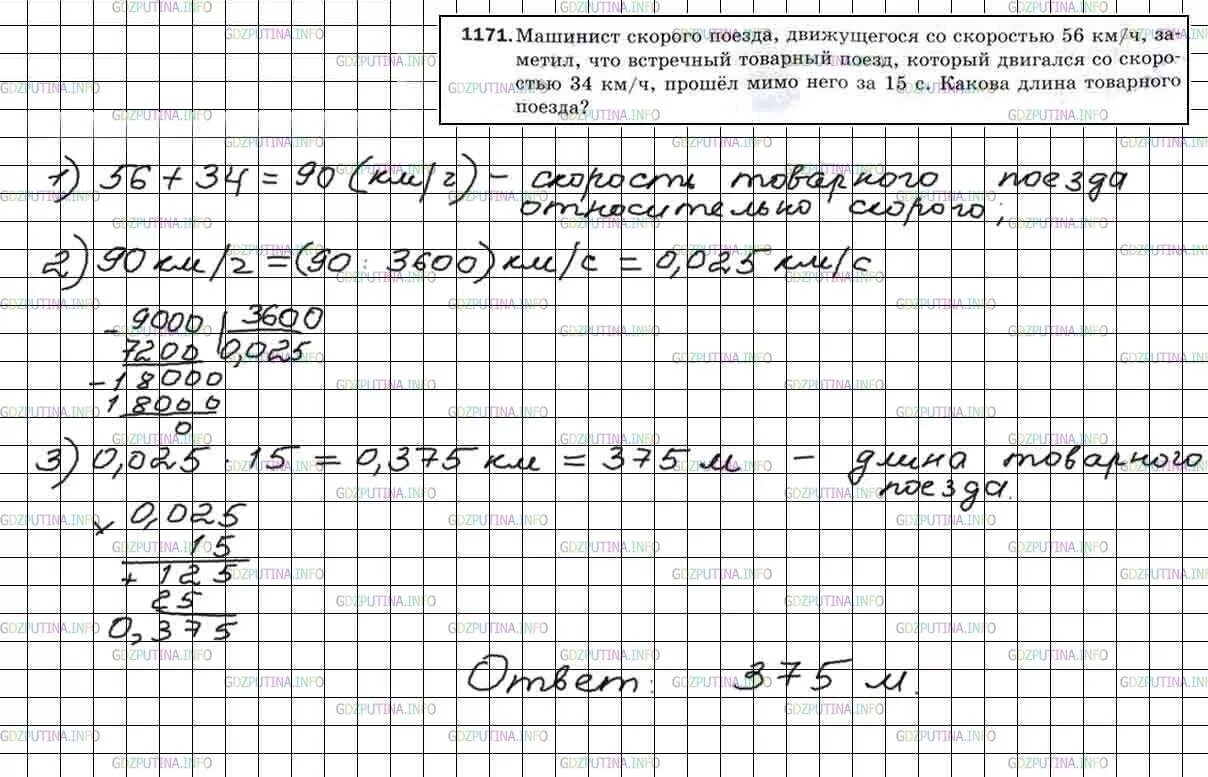 1171. Машинист скорого поезда, движущегося со скоростью 56 км/ч, за-
метил, что встречный товарный поезд, который двигался со скоро-
стью 34 км/ч, прошёл мимо него за 15 с. Какова длина товарного
поезда?
1) 56 + 34 = 90 (км/ч) - скорость товарного поезда
относительно скорого;
2) 90 км/ч = (90 : 3600) км/с = 0,025 км/с
- 9000 | 3600
7200 0,025
- 18000
18000
0
3) 0,025 · 15 = 0,375 км = 375 м - длина товарного
поезда.
× 0,025
15
+ 125
25
0,375
Ответ: 375 м.
GDZPUTINA.INFO